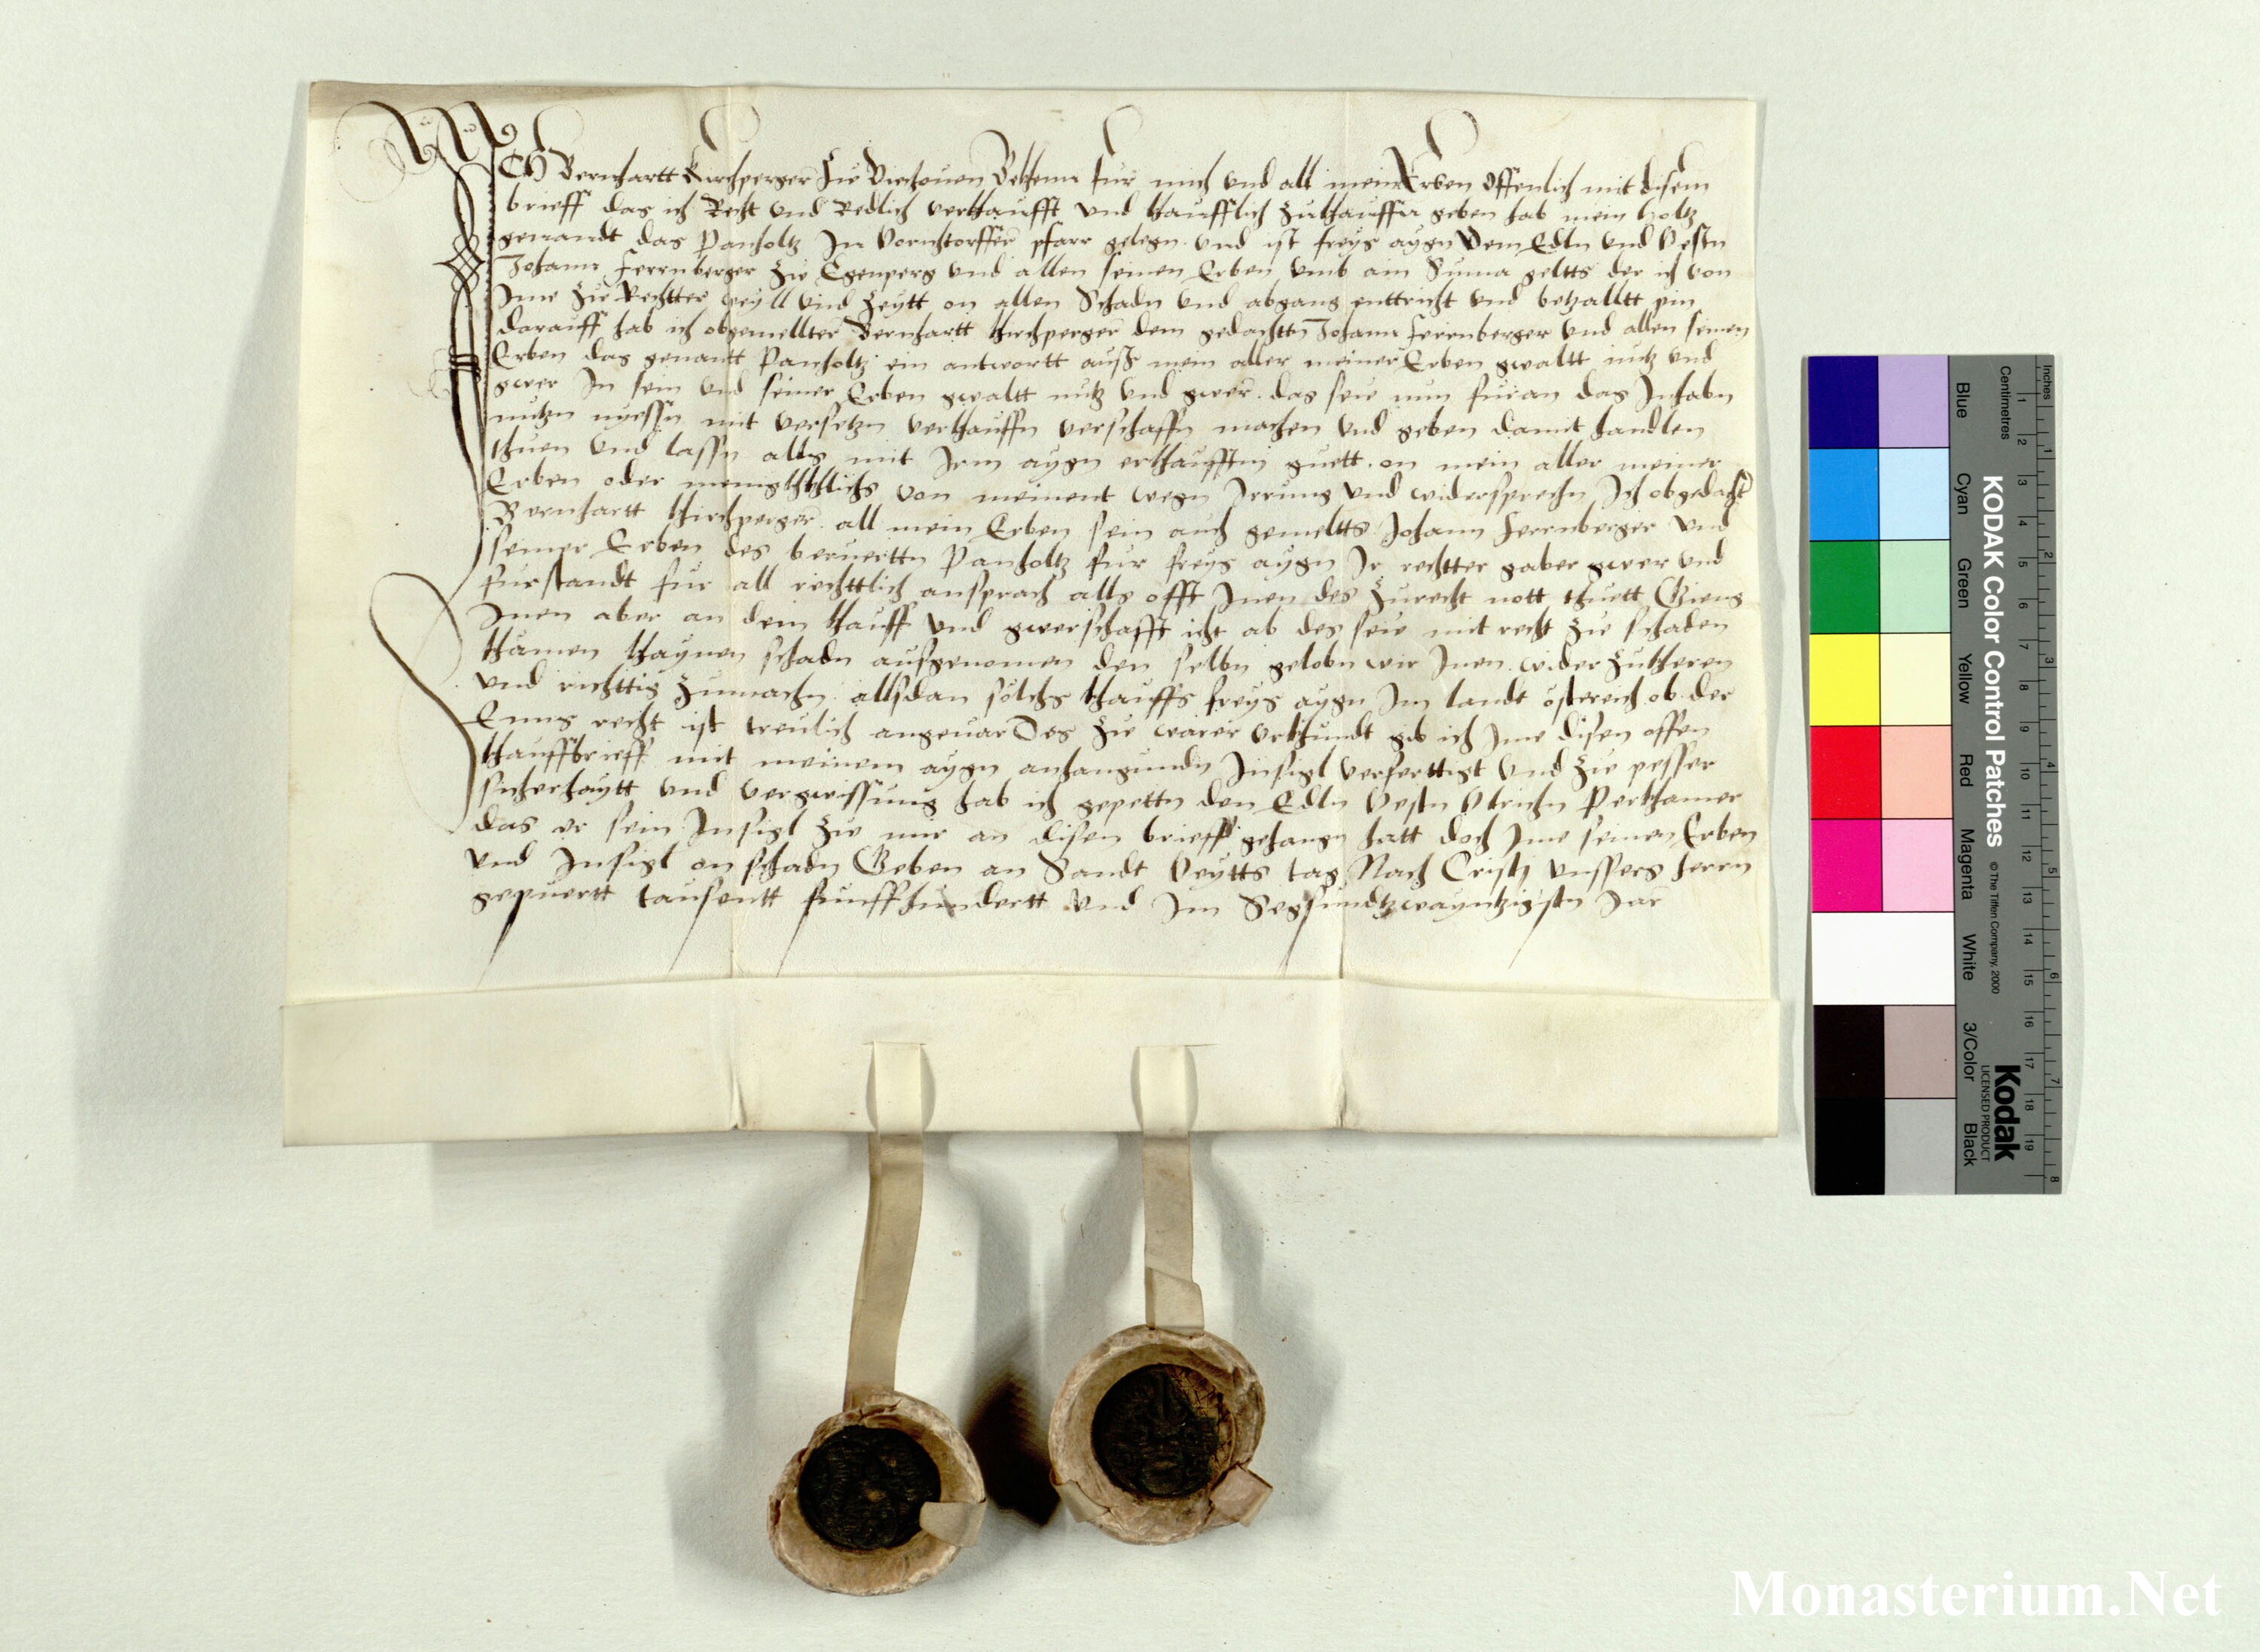 ICH Bernhartt Kirchperger Zw Viechouen Bekhenn fur mich und all mein Erben Offenlich mit disem
brieff das ich Recht und Redlich verkhaufft und khaufflich Zukhauffn geben hab mein holtz
genandt das Panholtz In Vorchtorffer pfarr gelegn und ist freys aygn Dem Edln und Vestn
Johann Fernberger Zw Egenperg und allen seinen Erben umb ain Suma geltts der ich von
Ime Zw Rechtter weyll und Zeytt on allen Schadn und abgang enttricht und betzalltt pin
darauff hab ich obgemellter Bernhartt Khirchperger dem gedachttn Johann Fernberger und allen seinen
Erben das genantt Panholtz ein antwortt auss mein aller meiner Erben gwaltt nutz und
gwer In sein und seiner Erben gwaltt nutz und gwer das seie nun furan das Inhabn
nutzn nyessn mit versetzn verkhauffn verschaffn machen und geben damit handlen
thuen und lassn alls mit Irm aygn erkhaufftn guett on mein aller meiner
Erben oder von meinent wegn Irrung und widersprechn Ich obgedacht
Bernhartt Khirchperger all mein Erben sein auch gemeltts Johann Fernberger und
seiner Erben des beruerttn Panholtz fur freys aygn Ir rechtter gwer und
furstandt fur all rechttlich ansprach alls offt Inen des Zurecht nott thuett Gieng
Inen aber an dem khauff und gwerschafft icht ab des seie mit recht Zw schaden
khamen khaynen schadn aussgenomen den selbn gelobn wir Inen wider Zukheren
und richttig Zumachn allsdan solchs khauffs freys aygn Im landt osterreich ob der
Enns recht ist treulich angeuar Des Zw warer urkhundt gib ich Ime disen offen
khauffbrieff mit meinem aygn anhangundn Insigl verferttigt und Zw pesser
sicherhaytt und vergwissung hab ich gepettn den Edln Vestn Ulrichn Perkhamer
das er sein Insigl Zw mir an disen brieff gehangn hatt doch Ime seinen Erben
und Insigl on schadn Geben an Sandt Veytts tag Nach Cristj unssers herrn
gepuertt tausentt funffhundertt und Im Segsundtzwayntzigistn Jar
Inches
Centimetres
KODAK Color Control Patches © The Tiffen Company, 2000
Kodak
LICENSED PRODUCT
Blue Cyan Green Yellow Red Magenta White 3/Color Black
1 2 3 4 5 6 7 8 9 10 11 12 13 14 15 16 17 18 19
1 2 3 4 5 6 7 8
Monasterium.Net